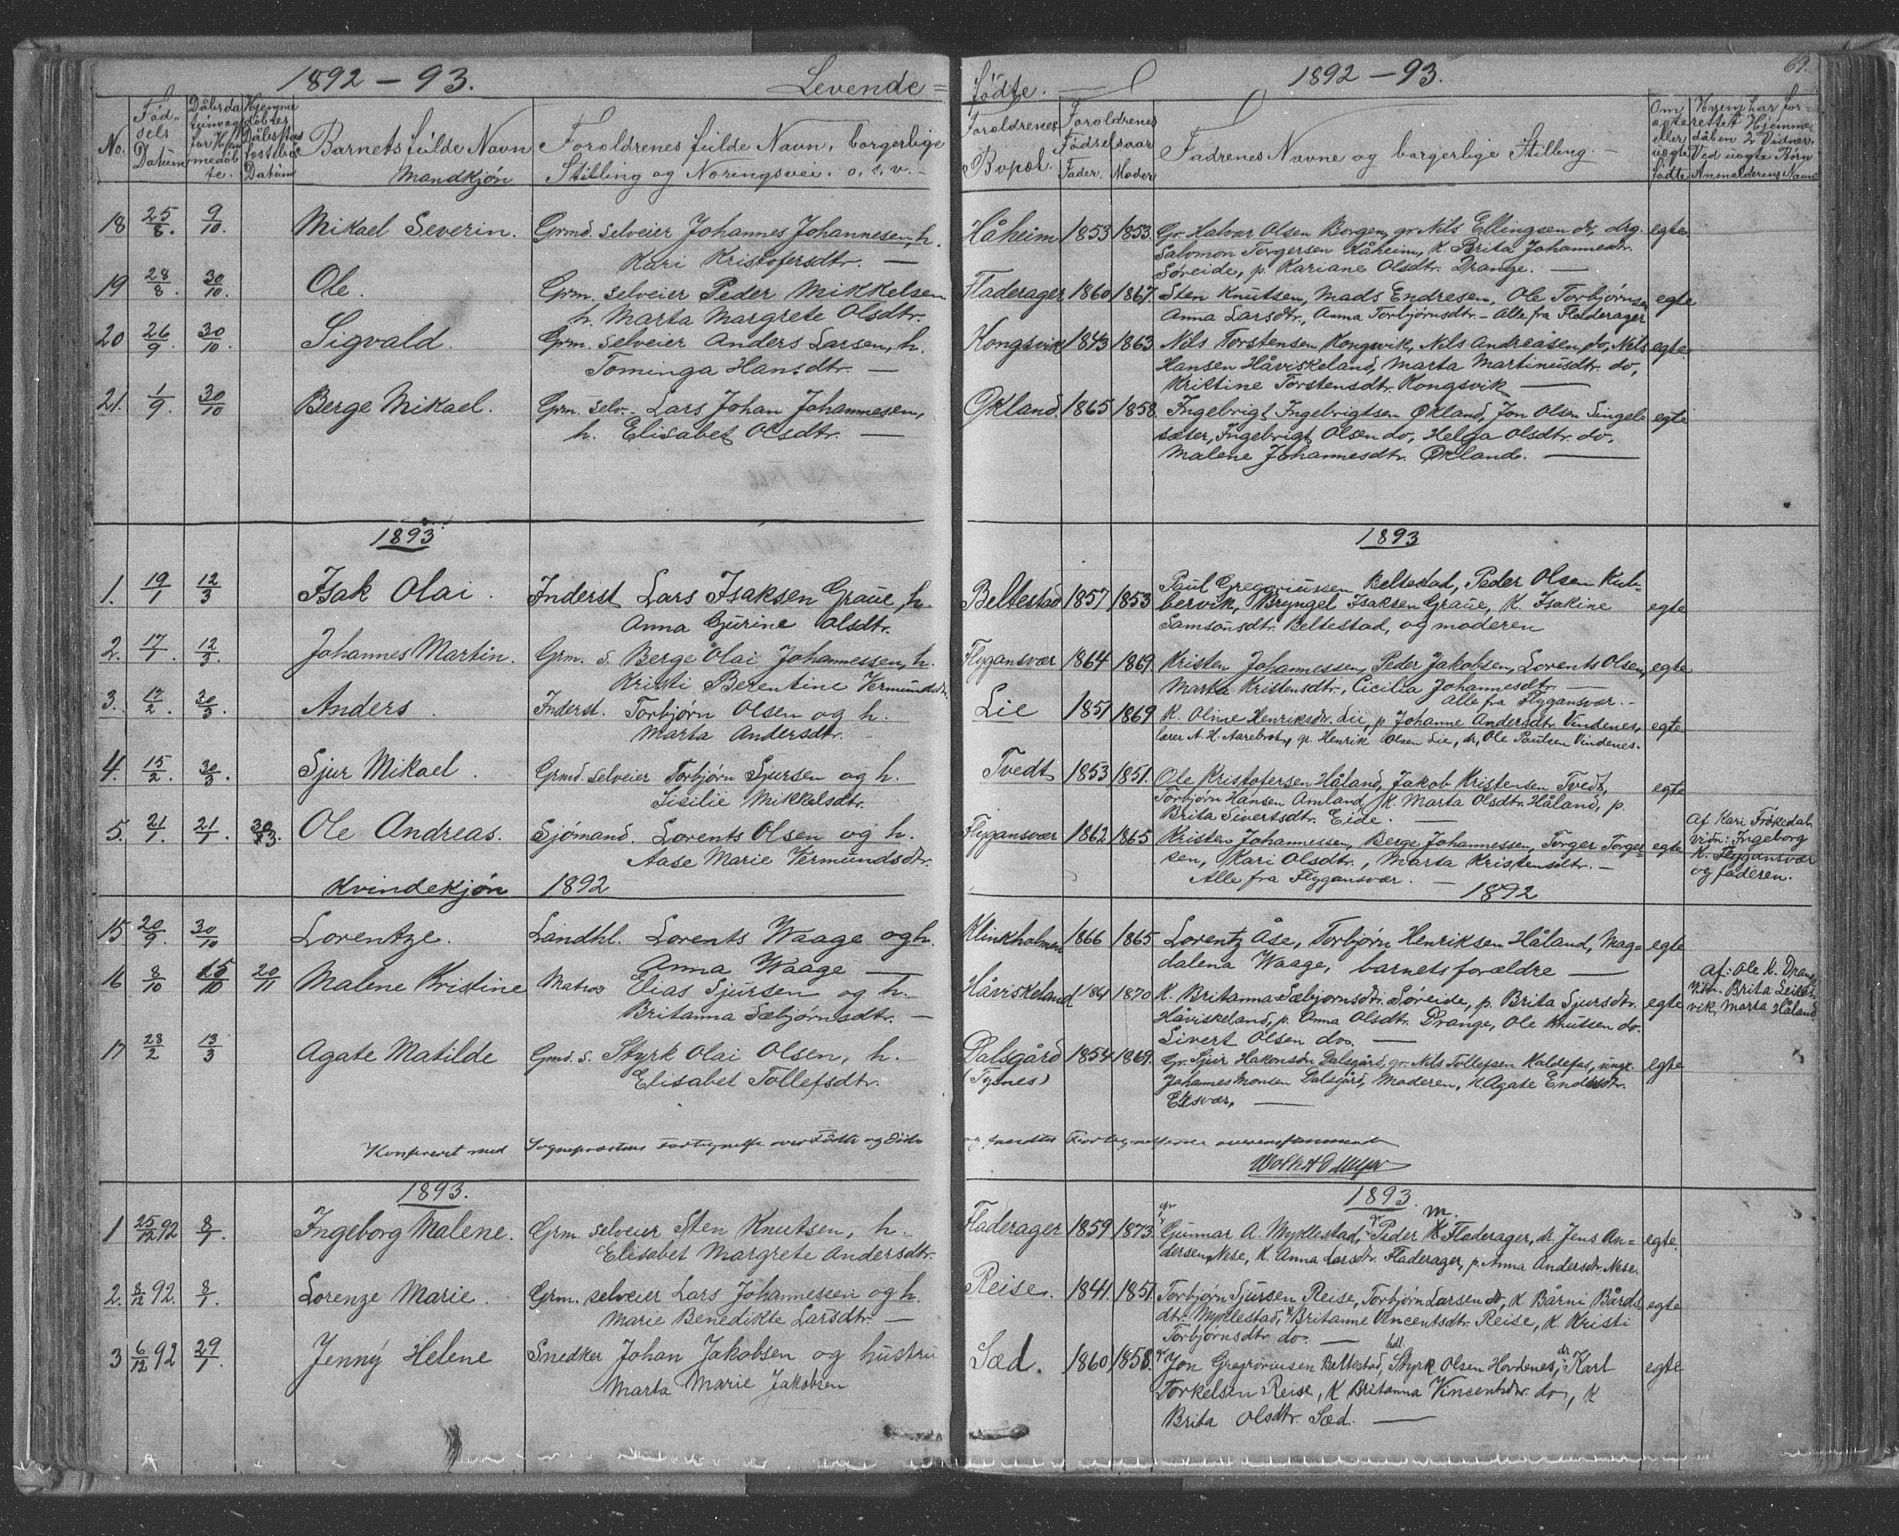 1892 – 93. Levende=
No. Fødsels Datum Barnets fulde Navn Mandkjøn
Foroldrenes fulde Navn, borgerlige
Stilling og Noringsvei. o.s.v.
18 25/8. 9/10. Mikael Severin. Grmd. selveier Johannes Johannesen, h.
Kari Kristofersdtr. —
19 28/8. 30/10. Ole. Grm. selveier Peder Mikkelsen
h. Marta Margrete Olsdtr.
20 26/9. 30/10. Sigvald. Grm. selveier Anders Larsen, h.
Tominga Hansdtr. —
21. 1/9. 30/10 Berge Mikael. Grm. selv. Lars Johan Johannesen,
h. Elisabet Olsdtr. —
1893
1. 19/1 12/3 Isak Olai. Inderst Lars Isaksen Graue, h.
Anna Gurine Olsdtr.
2. 17/1. 12/3. Johannes Martin. Grm. S. Berge Olai Johannessen, h.
Kristi Berentine Vermundsdtr.
3. 12/2. 30/3. Anders. Inderst. Torbjørn Olsen og h.
Marta Andersdtr.
4. 15/2. 30/3. Sjur Mikael. Grmd. selveier Torbjørn Sjursen og h.
Sisilie Mikkelsdtr.
5. 21/1. 21/1. Ole Andreas. Sjómand. Lorents Olsen og h.
Aase Marie Vermundsdtr.
Kvindekjøn 1892
15 20/9. 30/10 Lorentze. Landhl. Lorents Waage og h.
Anna Waage —
16 8/10 15/10 20/11 Malene Kristine Matros Elias Sjursen og h.
Britanna Sæbjørnsdtr. —
17 28/2 13/3 Agate Matilde Grmd. S. Styrk Olai Olsen, h.
Elisabet Tollefsdtr.
Konfereret med Sogneprestens Fortegnelse over Fødte og Døde
1893.
1 25/12 92 8/1. Ingeborg Malene. Grm. selveier Sten Knutsen, h.
Elisabet Margrete Andersdtr.
2. 8/12 92. 8/1 Lorenze Marie. Grm. selveier Lars Johannessen og h.
Marie Benedikte Larsdtr. —
3 6/12 92 29/1 Jenny Helene Snedker Johan Jakobsen og hustru
Marta Marie Jakobsen
Fødte. 1892 – 93. 69.
Foroldrenes Bopæl. Foroldrenes Fødselsaar Fader. Moder
Fadrenes Navne og borgerlige Stilling.
Om ogte eller uogte fødte
Hvem har forrettet Hjemmedåben 2 Vidner. Ved uogte Børn Anmelderens Navn
Håheim 1853 1853. Gr. Halvar Olsen Borgen, gr. Nils Ellingsen do, drg. egte
Salomon Torgersen Håheim, K. Brita Johannesdtr.
Søreide, p. Kariane Olsdtr. Drange. —
Fladerager 1860 1867. Sten Knutsen, Mads Endresen, Ole Torbjørnsen egte
Anna Larsdtr., Anna Torbjørnsdtr. – Alle fra Fladerager
Kongsvik 1843 1863. Nils Torstensen Kongsvik, Nils Andreasen do, Nils egte
Hansen Håviskeland, Marta Martinusdtr. do,
Kristine Torstensdtr. Kongsvik —
Økland 1865 1858. Ingebrigt Ingebrigtsen Økland, Jon Olsen Singel- egte
sæter, Ingebrigt Olsen do, Helga Olsdtr. do,
Malene Johannesdtr. Økland. —
1893
Paul Gregoriussen Beltestad, Peder Olsen Kul-
Beltestad 1857 1853 bervik, Bryngel Isaksen Graue, K. Isakine egte
Samsonsdtr. Beltestad, og moderen
Flygansvær 1864 1869. Kristen Johannessen, Peder Jakobsen, Lorents Olsen, egte
Marta Kristensdtr, Cicilia Johannesdtr.
Alle fra Flygansvær. –
Lie 1851 1869 K. Oline Henriksdtr. Lie, p. Johanne Andersdtr. Vindenes, egte
lærer A. H. Aarebrot, gr. Henrik Olsen Lie, dr. Ole Paulsen Vindenes.
Tvedt 1853 1851. Ole Kristofersen Håland, Jakob Kristensen Tvedt, egte
Torbjørn Hansen Amland, K. Marta Olsdtr. Håland, p.
Brita Sivertsdtr. Eide. —
Flygansvær 1862 1865 Kristen Johannessen, Berge Johannessen, Torger Torger- egte
sen, Kari Olsdtr., Marta Kristensdtr. –
Alle fra Flygansvær. – 1892
Af Kari Frøkedal
vidn: Ingeborg
K. Flygansvær
og faderen.
Klinkholmen 1866 1865 Lorentz Åse, Torbjørn Henriksen Håland, Mag- egte
dalena Waage, barnets forældre —
Håviskeland 1841 1870 K. Britanna Sæbjørnsdtr. Søreide, p. Brita Sjursdtr. egte
Håviskeland, p. Anna Olsdtr. Drange, Ole Knutsen do.
Sivert Olsen do. —
af: Ole K. Drange
Vidn. Brita Leiks-
vik, Marta Håland
Dalsgård 1854 1869. Gr. Sjur Hakonsen Dalsgård, gr. Nils Tollefsen Kaldefos, unge. egte
(Tysnes) Johannes Monsen Dalsgård, Moderen, K. Agate Endresdtr.
Elsvær, —
og fandtes Fortegnelserne overensstemmende
1893.
Fladerager 1859 1873. Gunnar A. Myklestad, gr Peder M. Fladerager, dr. Jens An- egte.
dersen Nese, K. Anna Larsdtr. Fladerager, p. Anna Andersdtr. Nese.
Reise. 1841 1851. Torbjørn Sjursen Reise, Torbjørn Larsen do, K. Bårni Bårds- egte
dtr. Myklestad, K Britanne Vincentsdtr. Reise, K. Kristi
Torbjørnsdtr. do. —
Sæd. 1860 1858. Jon Gregoriusen Beltestad, Styrk Olsen Hovdenes, dr. Karl egte
Torkelsen Reise, K Britanna Vinsentsdtr. do, K
Brita Olsdtr. Sæd. —